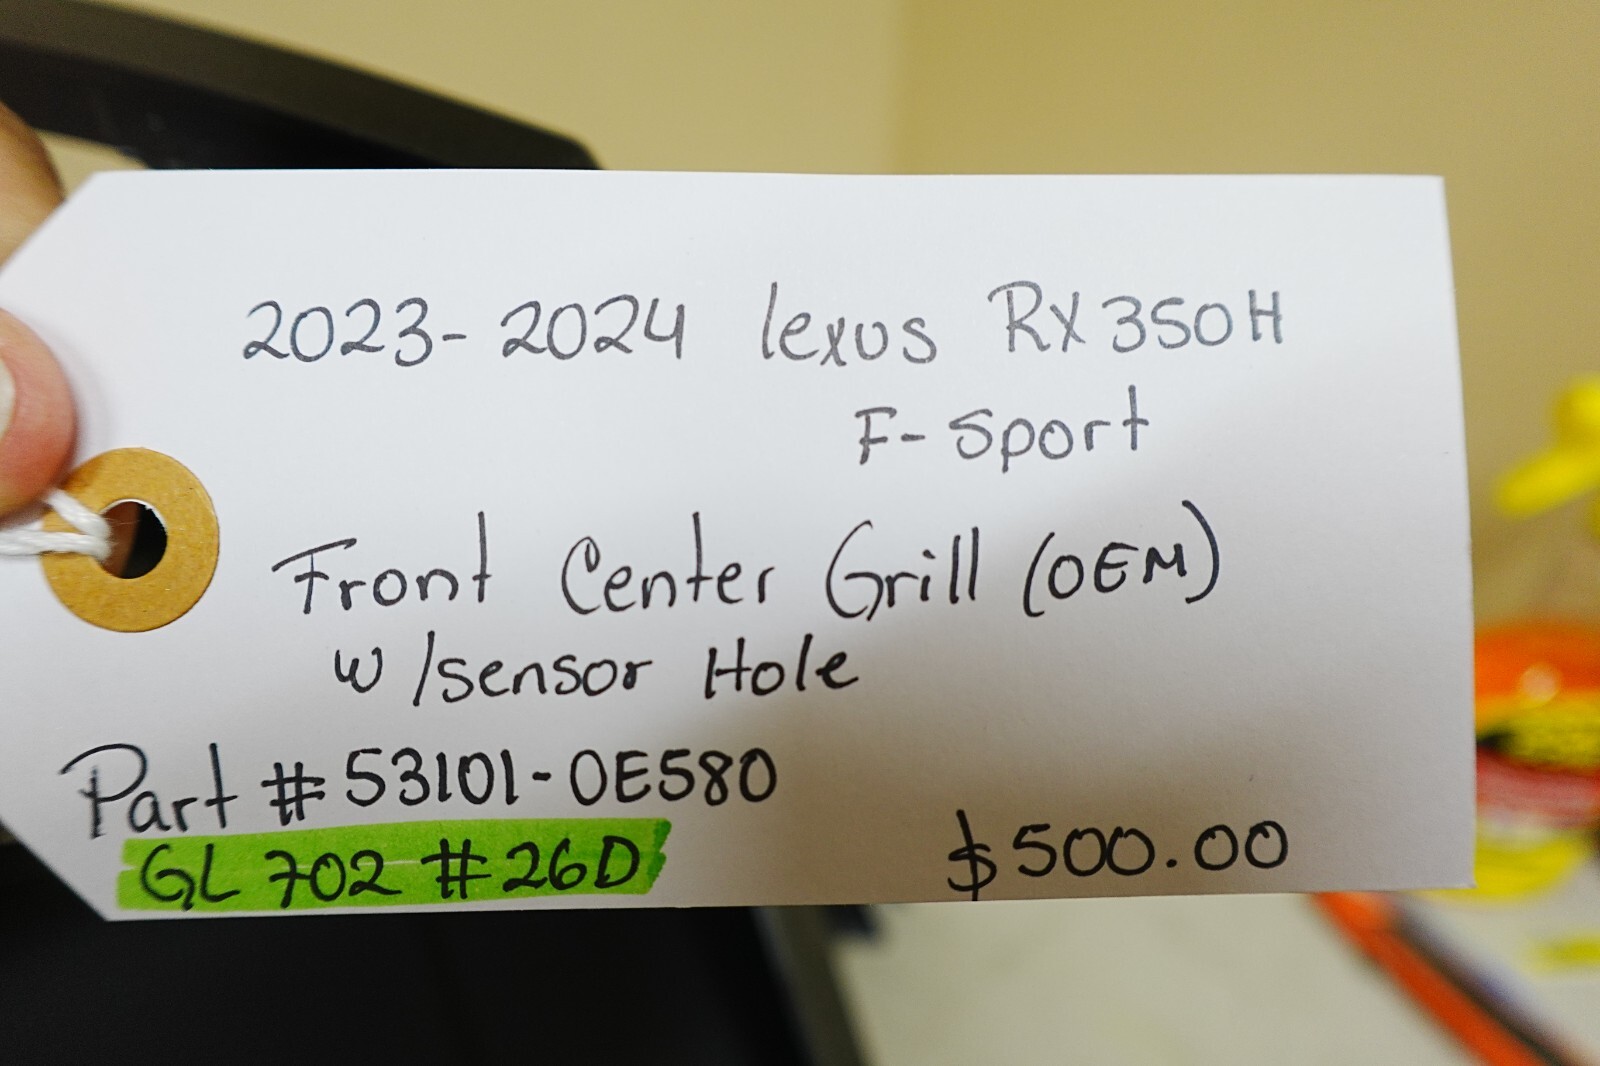 2023-2024 lexus RX350H
F-Sport
Front Center Grill (OEM)
w/sensor Hole
Part #53101-0E580
GL 702 #26D
$500.00